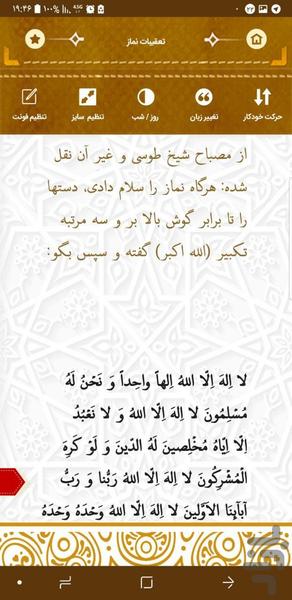 ۱۹:۴۶ ۱۰۰% 4.5G
تعقیبات نماز
حرکت خودکار
تغییر زبان
روز / شب
تنظیم سایز
تنظیم فونت
از مصباح شیخ طوسی و غیر آن نقل
شده: هرگاه نماز را سلام دادی، دستها
را تا برابر گوش بالا بر و سه مرتبه
تکبیر (الله اکبر) گفته و سپس بگو:
لا اِلهَ اِلّا اللهُ اِلهاً واحِداً وَ نَحْنُ لَهُ
مُسْلِمُونَ لا اِلهَ اِلّا اللهُ وَ لا نَعْبُدُ
اِلّا اِيّاهُ مُخْلِصينَ لَهُ الدّينَ وَ لَوْ كَرِهَ
الْمُشْرِكُونَ لا اِلهَ اِلّا اللهُ رَبُّنا وَ رَبُّ
آبآئِنَا الْأَوَّلينَ لا اِلهَ اِلّا اللهُ وَحْدَهُ وَحْدَهُ